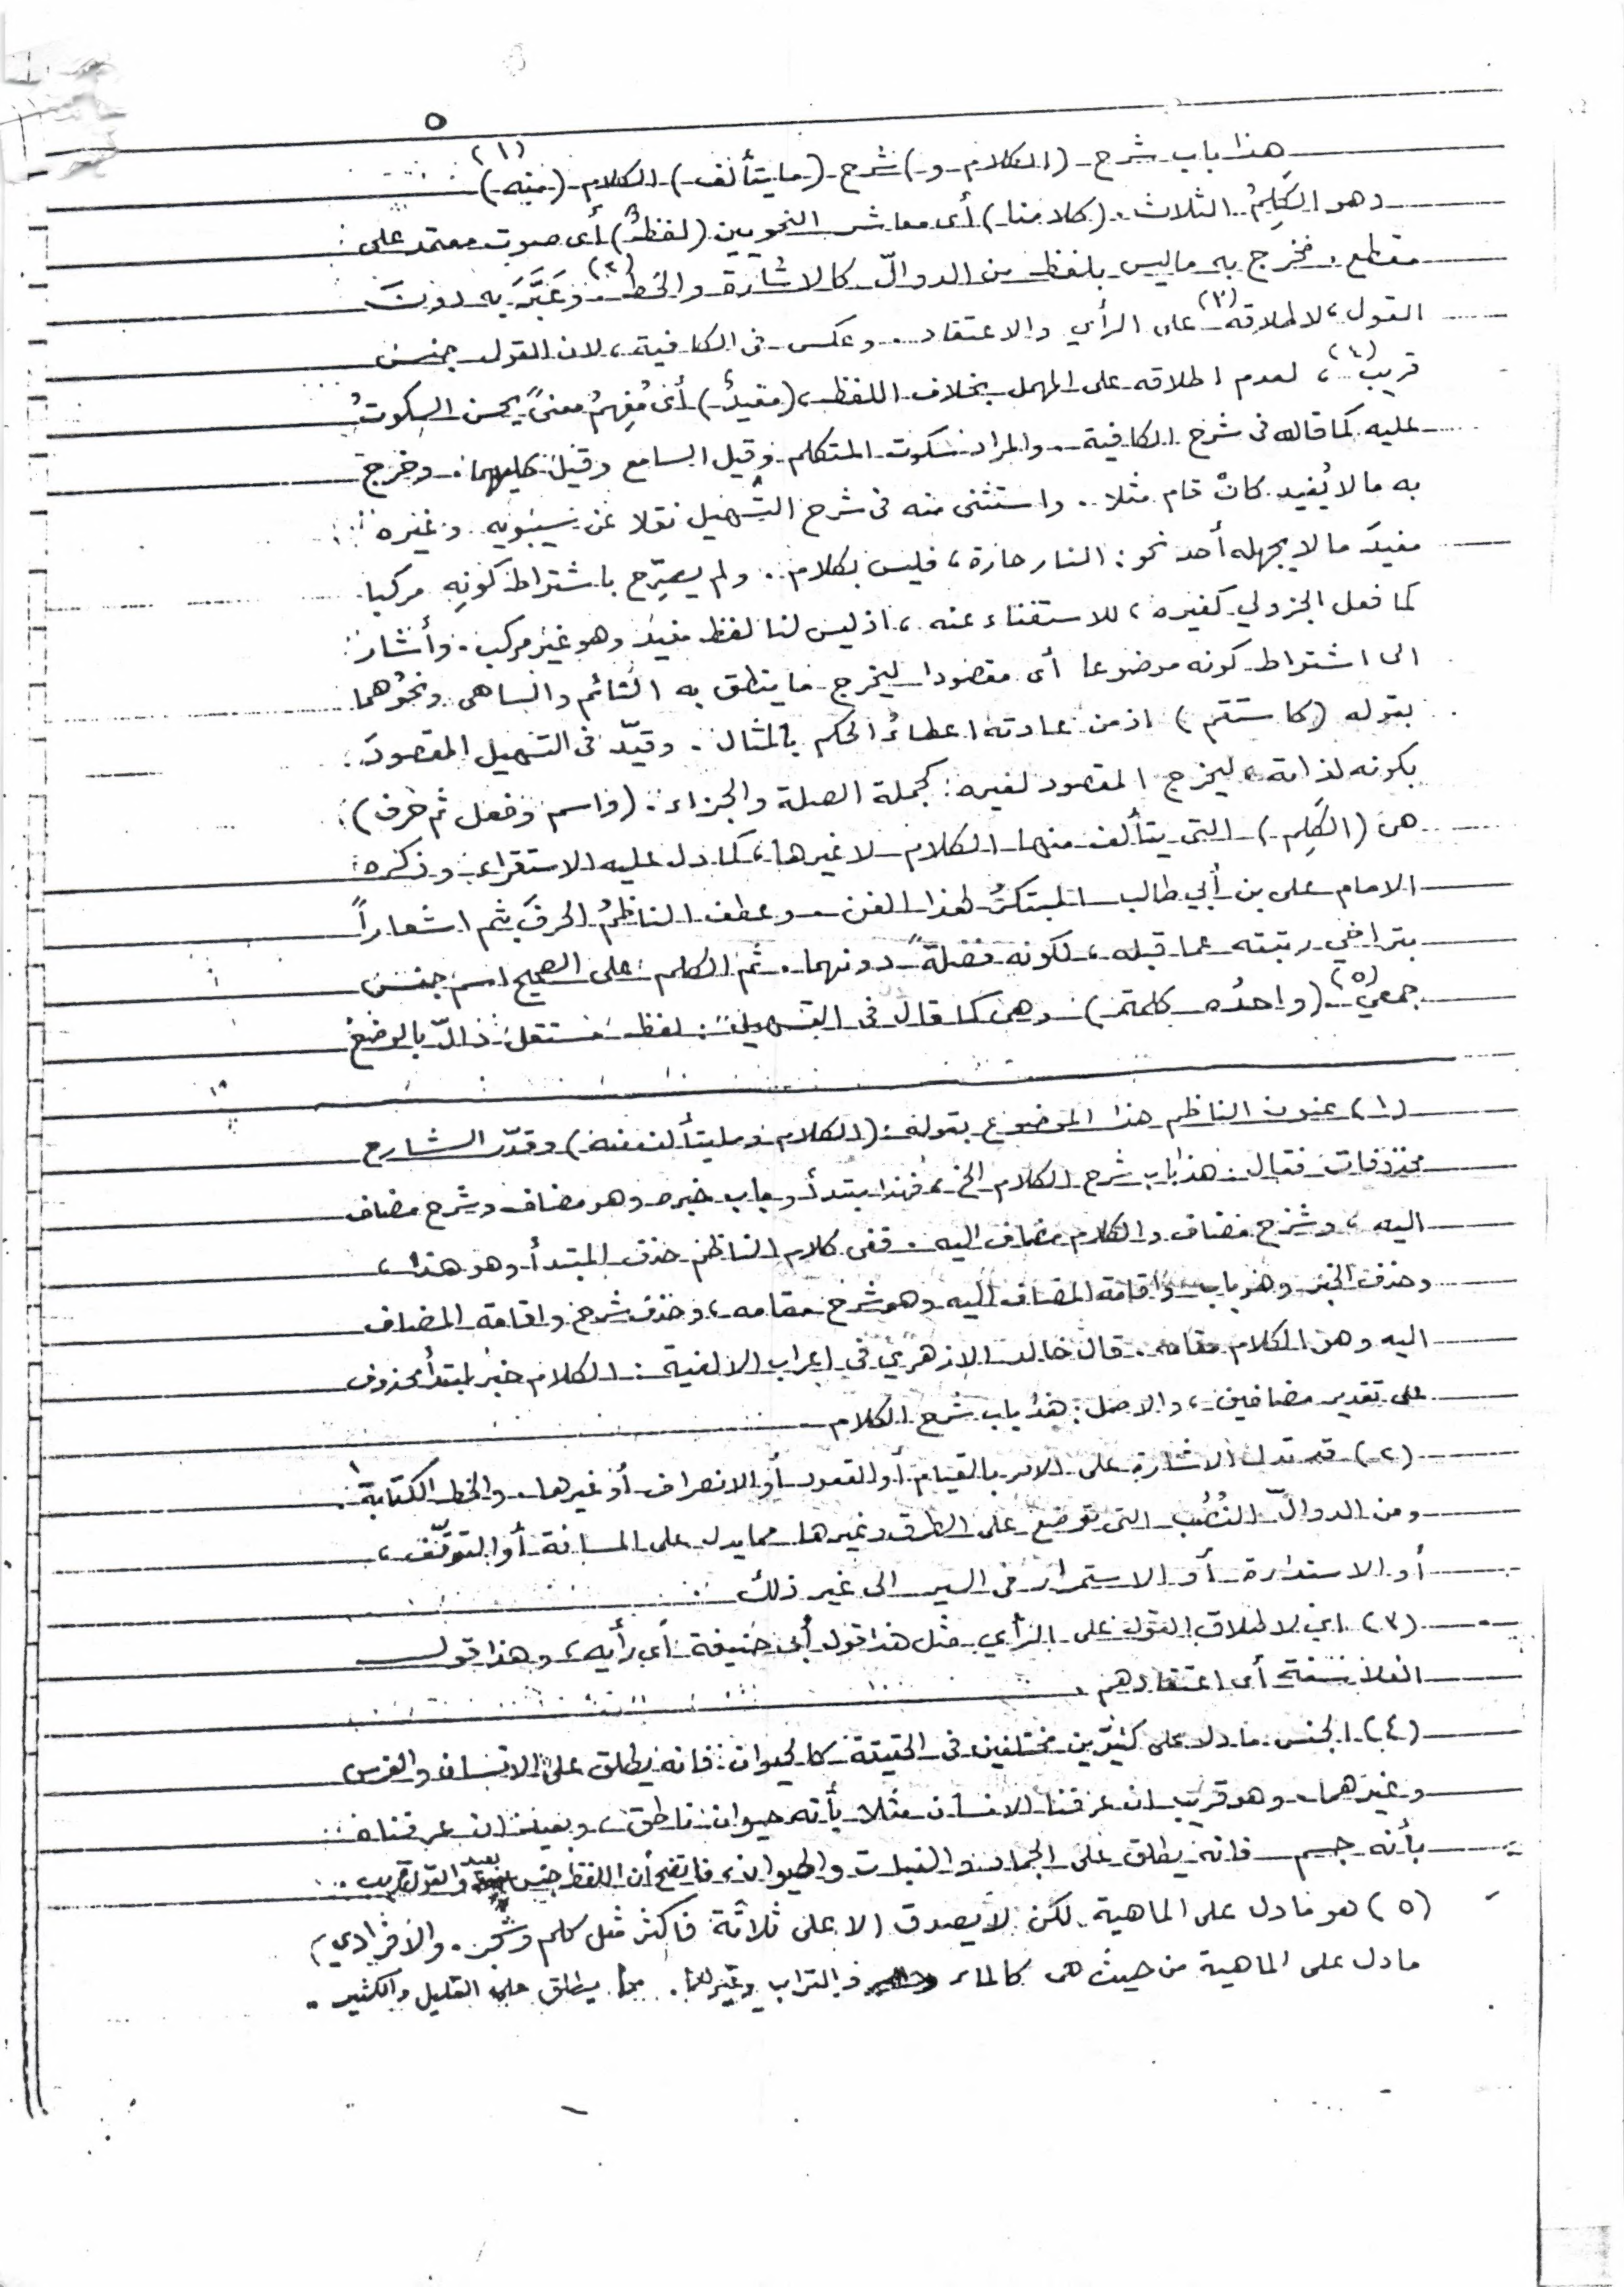 ٥
هذا باب شرح (الكلام و) شرح (ما يتألف) الكلام (منه) (١)
وهو الكَلِمُ الثلاث. (كلامنا) أى معاشر النحويين (لفظٌ) أى صوت معتمد على
مقطع، فخرج به ماليس بلفظ من الدوالّ كالاشارة والخط (٢). وعَبَّرَ به دونَ
القول، لاطلاقه (٣) على الرأي والاعتقاد. وعكس فى الكافية، لان القول جنس
قريب (٤)، لعدم اطلاقه على المهمل بخلاف اللفظ، (مفيدٌ) أى مُفهِمٌ معنىً يحسن السكوتُ
عليه كما قاله فى شرح الكافية. والمراد سكوت المتكلم وقيل السامع وقيل كليهما. وخرج
به مالا يُفيد كانْ قام مثلا. واستثنى منه فى شرح التسهيل نقلا عن سيبويه وغيره
مفيدَ مالا يجهله أحد نحو: النار حارة، فليس بكلام. ولم يصرِّح باشتراط كونِه مركبا
كما فعل الجزولي كغيره، للاستغناء عنه، اذ ليس لنا لفظ مفيد وهو غير مركب. وأشار
الى اشتراط كونه موضوعا أى مقصودا ليخرج ما ينطق به النائم والساهى ونحوُهما
بقوله (كاستقم) اذ من عادته اعطاءُ الحكم بالمثال. وقيّد فى التسهيل المقصودَ
بكونه لذاته، ليخرج المقصود لغيره: كجملة الصلة والجزاء. (واسم وفعل ثم حرف)
هى (الكَلِم) التى يتألف منها الكلام لا غيرها، كما دل عليه الاستقراء وذكره
الامام على بن أبي طالب المبتكرُ لهذا الفن. وعطف الناظمُ الحرفَ بثم اشعاراً
بتراخي رتبته عما قبله، لكونه فضلةً دونهما. ثم الكلم على الصحيح اسم جنس
جمعيّ (٥) (واحدُه كلمة) وهى كما قال فى التسهيل: لفظ مستقل دالّ بالوضع
(١) عنون الناظم هذا الموضوع بقوله: (الكلام وما يتألف منه) وقدّر الشارح
محذوفات فقال: هذا باب شرح الكلام الخ، فهذا مبتدأ وباب خبره وهو مضاف وشرح مضاف
اليه، وشرح مضاف والكلام مضاف اليه. ففى كلام الناظم حذف المبتدأ وهو هذا،
وحذف الخبر وهو باب واقامة المضاف اليه وهو شرح مقامه، وحذف شرح واقامة المضاف
اليه وهو الكلام مقامه. قال خالد الازهري فى اعراب الالفية: الكلام خبر لمبتدأ محذوف
على تقدير مضافين، والاصل: هذا باب شرح الكلام
(٢) قد تدل الاشارة على الامر بالقيام أو القعود أو الانصراف أو غيرها. والخط الكتابة.
ومن الدوالّ النُصُب التى توضع على الطرق وغيرها مما يدل على المسافة أو التوقّف،
أو الاستدارة أو الاستمرار فى السير الى غير ذلك
(٣) اي لاطلاق القول على الرأي مثل هذا قول أبى حنيفة أي رأيه، وهذا قول
الفلاسفة أى اعتقادهم
(٤) الجنس مادل على كثيرين مختلفين فى الحقيقة كالحيوان فانه يطلق على الانسان والفرس
وغيرهما. وهو قريب ان عرفنا الانسان مثلا بأنه حيوان ناطق، وبعيد ان عرفناه
بأنه جسم فانه يطلق على الجماد والنبات والحيوان، فاتضح أن اللفظ جنس بعيد والقول قريب.
(٥) هو مادل على الماهية لكن لا يصدق الا على ثلاثة فاكثر مثل كلم وشجر. والافرادي
مادل على الماهية من حيث هى كالماء والتراب وغيرهما. مما يطلق على القليل والكثير.